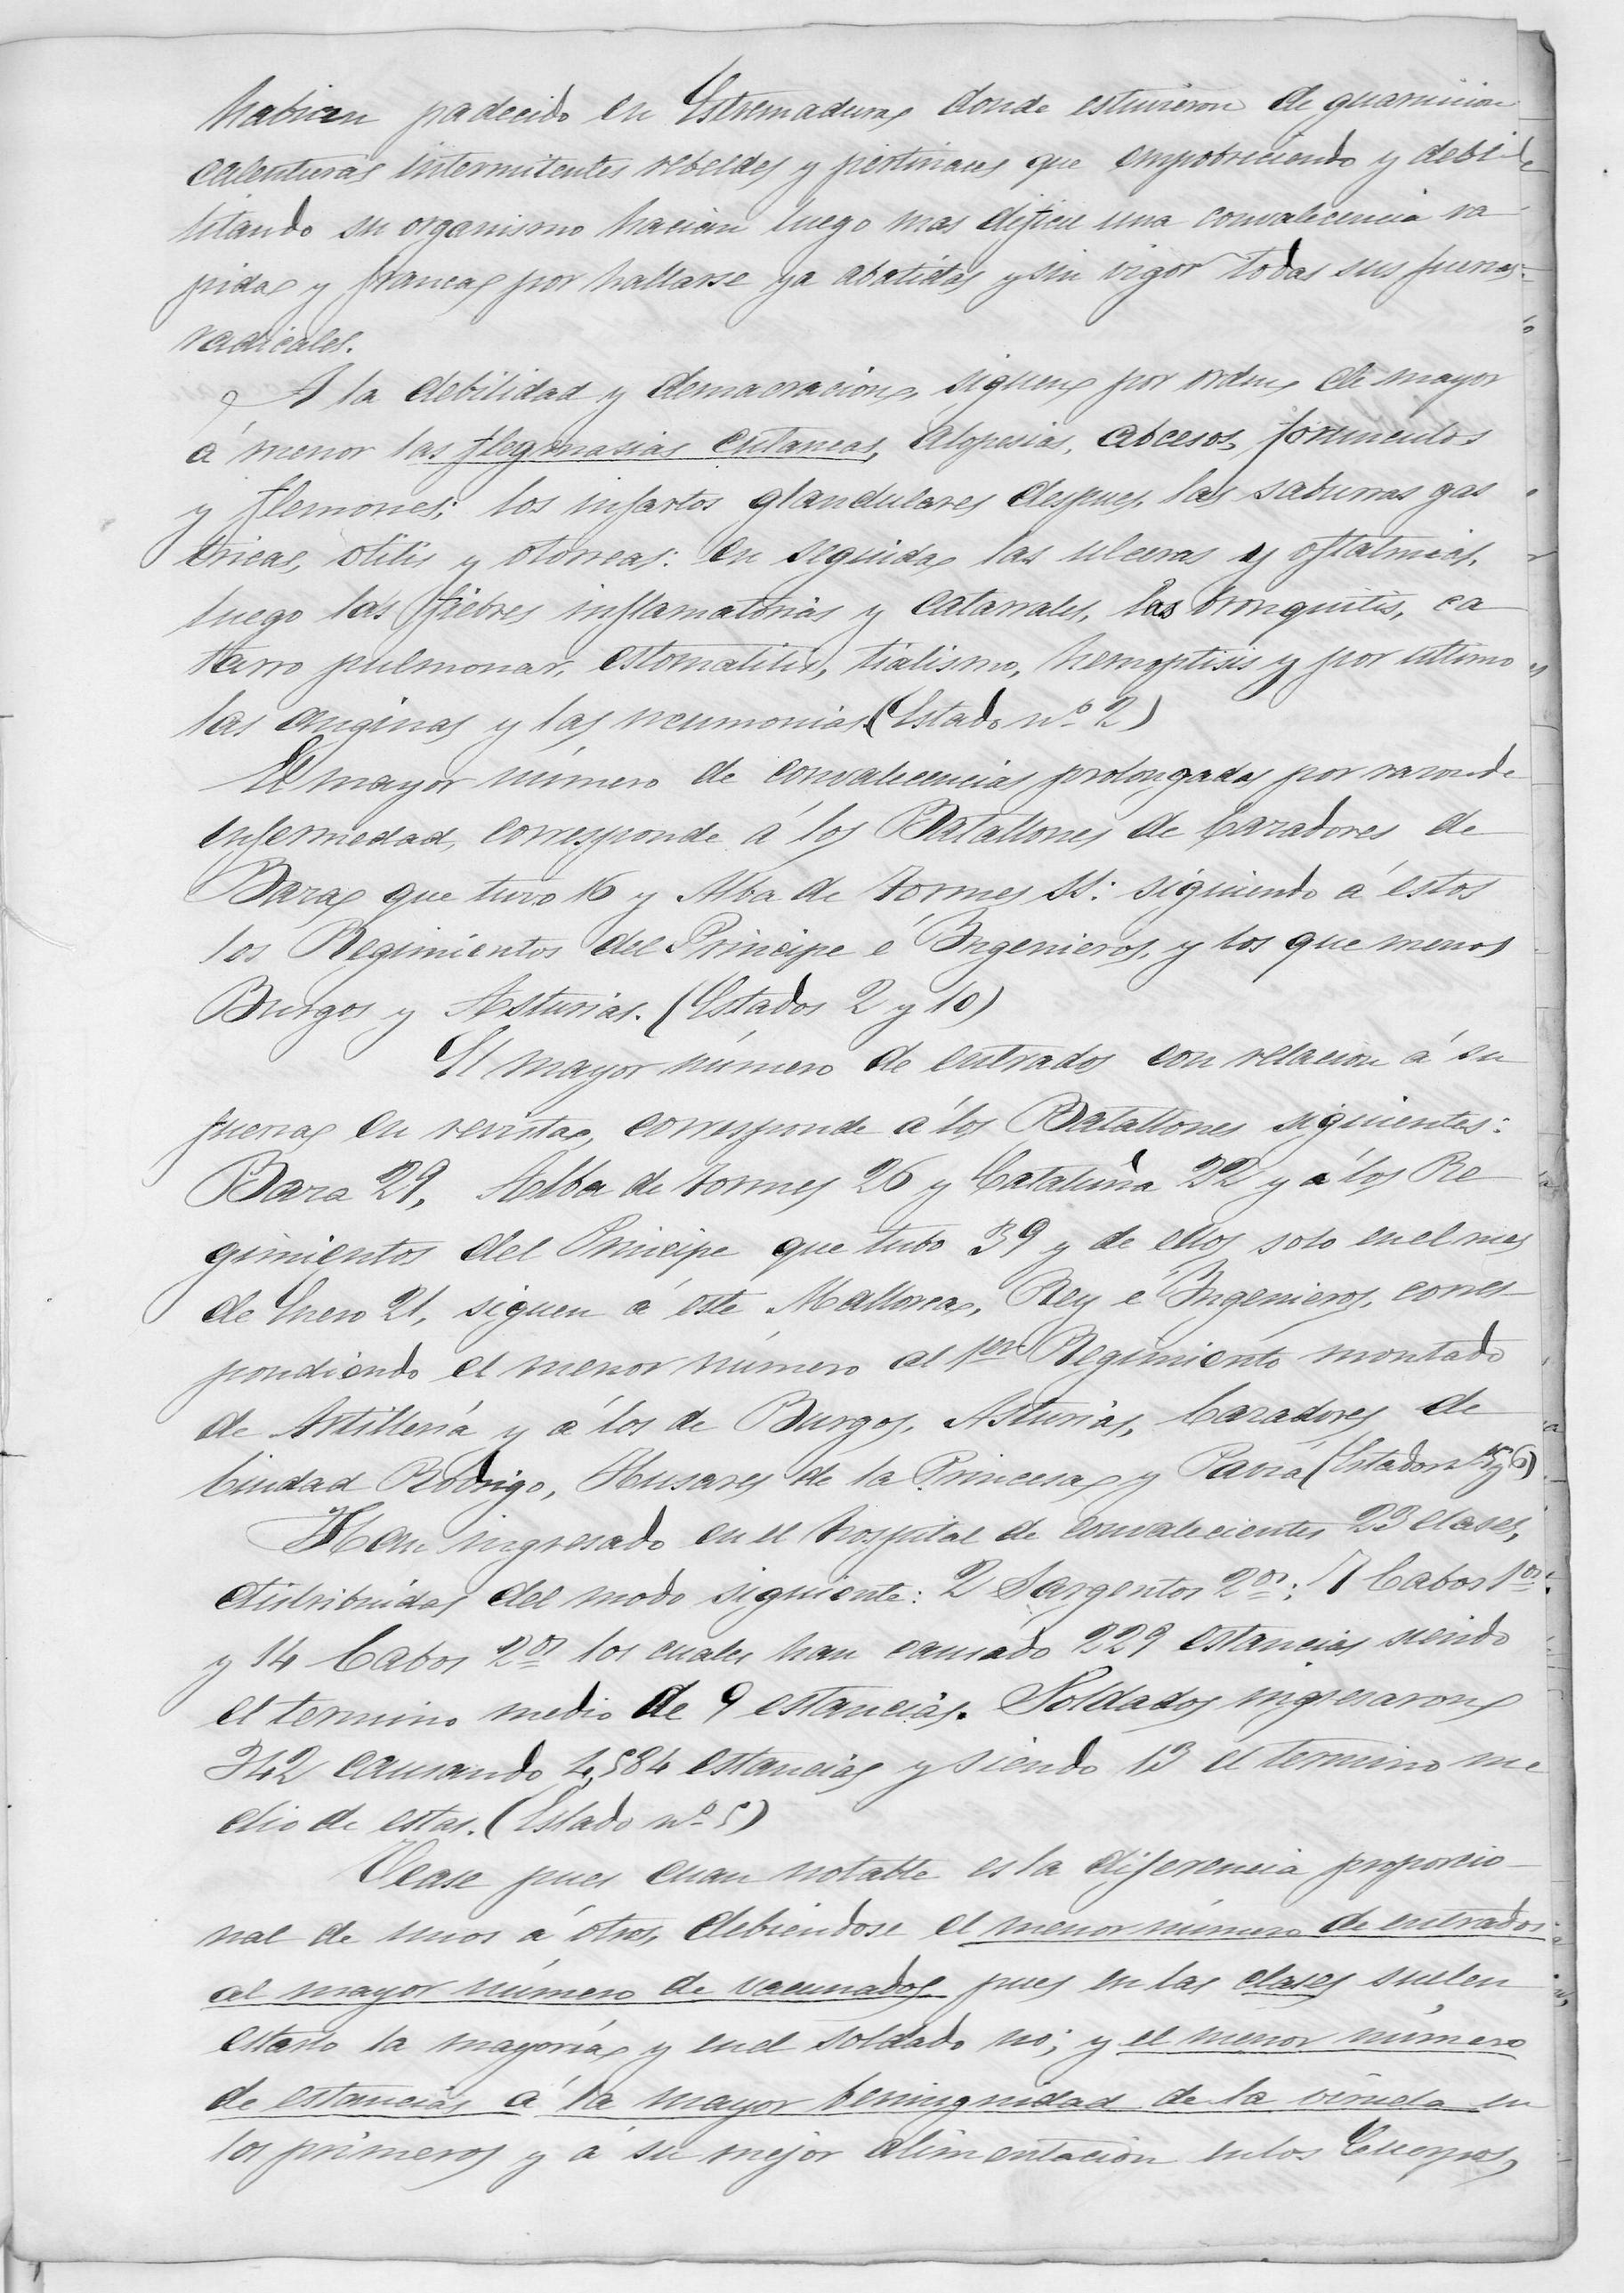 habian padecido en Estremadura donde estuvieron de guarnicion
calenturas intermitentes rebeldes y pertinaces que empobreciendo y debi-
litando su organismo hacian luego mas dificil una convalecencia ra
pida y franca por hallarse ya abatidas y sin vigor todas sus fuerzas
radicales.
A la debilidad y demacracion, siguen por orden de mayor
á menor las flegmasias cutaneas, alopesias, abcesos, forunculos
y flemones; los infartos glandulares despues, las saburras gas
tricas, otitis y otorreas: en seguida las ulceras y oftalmias,
luego las fiebres inflamatorias y catarrales, las bronquitis, ca
tarro pulmonar, estomatitis, tialismo, hemoptisis y por ultimo
las anginas y las neumonias. (Estado nº 2)
El mayor número de convalecencias prolongadas por razon de
enfermedad, corresponde á los Batallones de Cazadores de
Baza que tuvo 16 y Alba de Tormes 11: siguiendo á estos
los Regimientos del Principe é Ingenieros, y los que menos
Burgos y Asturias. (Estados 2 y 10)
El mayor número de entrados con relacion á su
fuerza en revista, corresponde á los Batallones siguientes:
Baza 29, Alba de Tormes 26 y Cataluña 22 y á los Re
gimientos del Principe que tubo 39 y de ellos solo en el mes
de Enero 21, siguen á este Mallorca, Rey é Ingenieros, corres-
pondiendo el menor número al 1er Regimiento montado
de Artilleria y á los de Burgos, Asturias, Cazadores de
Ciudad Rodrigo, Husares de la Princesa y Pavia (Estados 5 y 6)
Han ingresado en el hospital de convalecientes 23 clases,
distribuidas del modo siguiente: 2 Sargentos 2os; 7 Cabos 1os
y 14 Cabos 2os los cuales han causado 229 estancias siendo
el termino medio de 9 estancias. Soldados ingresaron
342 causando 4,584 estancias y siendo 13 el termino me
dio de estas. (Estado nº 5)
Vease pues cuan notable es la diferencia proporcio-
nal de unos á otros, debiendose el menor número de entrados
al mayor número de vacunados pues en las clases suelen
estarlo la mayoria y en el soldado no; y el menor número
de estancias á la mayor benignidad de la viruela en
los primeros y á su mejor alimentacion en los Cuerpos,